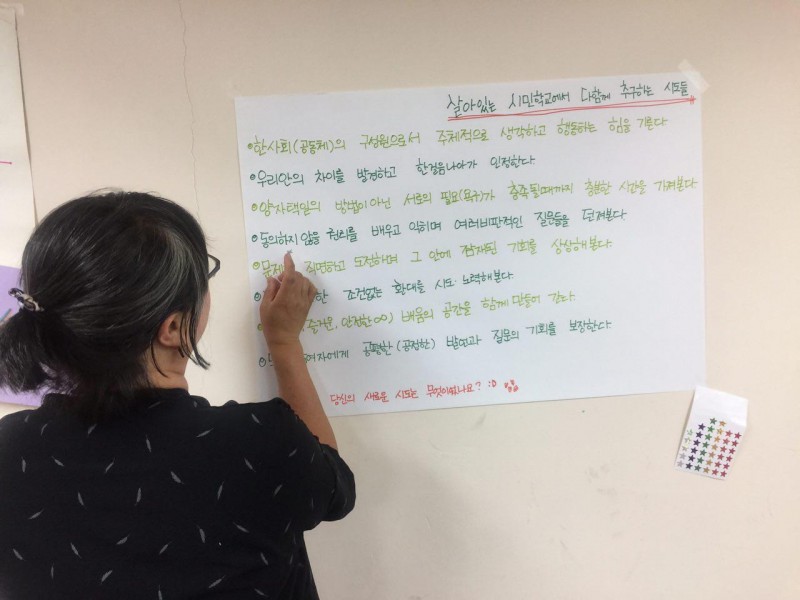 살아있는 시민학교에서 다함께 추구하는 시도들
•한사회(공동체)의 구성원으로서 주체적으로 생각하고 행동하는 힘을 기른다
•우리안의 차이를 발견하고 한걸음나아가 인정한다
•양자택일의 방법이아닌 서로의 필요(욕구)가 충족될때까지 충분한 시간을 가져본다
•동의하지 않을 권리를 배우고 익히며 여러비판적인 질문들을 던져본다
•문제 직면하고 도전하며 그 안에 잠재된 기회를 상상해본다
한 조건없는 환대를 시도·노력해본다
즐거운, 안전한∞) 배움의 공간을 함께 만들어 간다
여자에게 공평한(공정한) 발언과 질문의 기회를 보장한다
당신의 새로운 시도는 무엇이었나요? :D